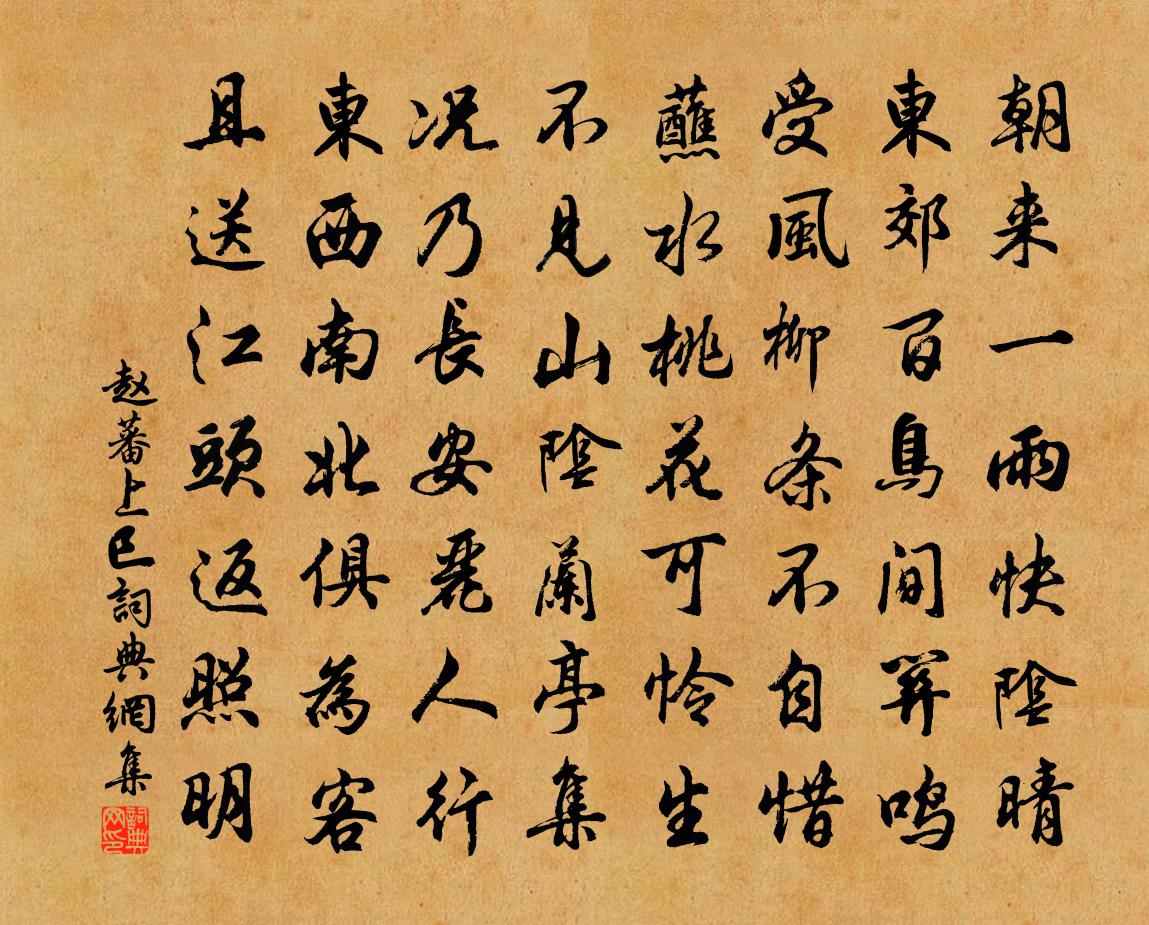 朝来一雨快陰晴
東郊百鳥間弄鳴
受風柳条不自惜
蘸水桃花可怜生
不見山陰蘭亭集
况乃長安麗人行
東西南北俱為客
且送江頭返照明
赵蕃上巳詞典網集
詞典网印